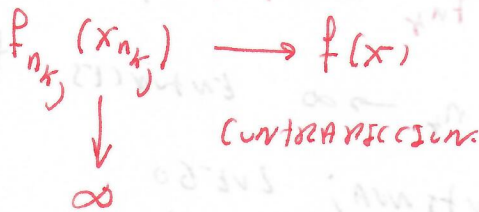 f_{n_{k_j}} (x_{n_{k_j}}) → f(x)
↓
CONTRADICCION.
∞